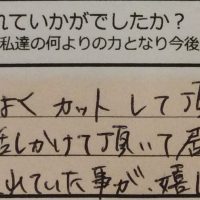 れていかがでしたか？
私達の何よりの力となり今後
はく カットして頂
話しかけて頂いて居
れていた事が、嬉し